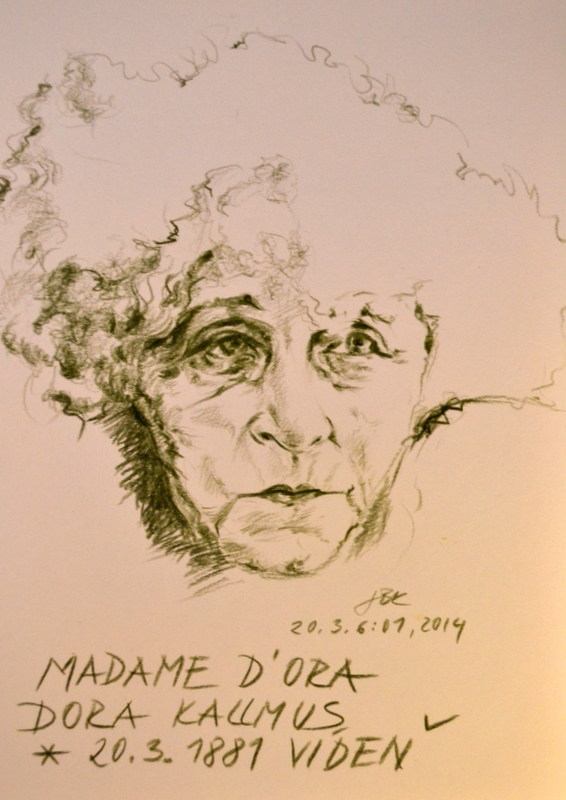 20.3.6:01,2014
MADAME D'ORA
DORA KALLMUS
* 20.3.1881 VÍDEN